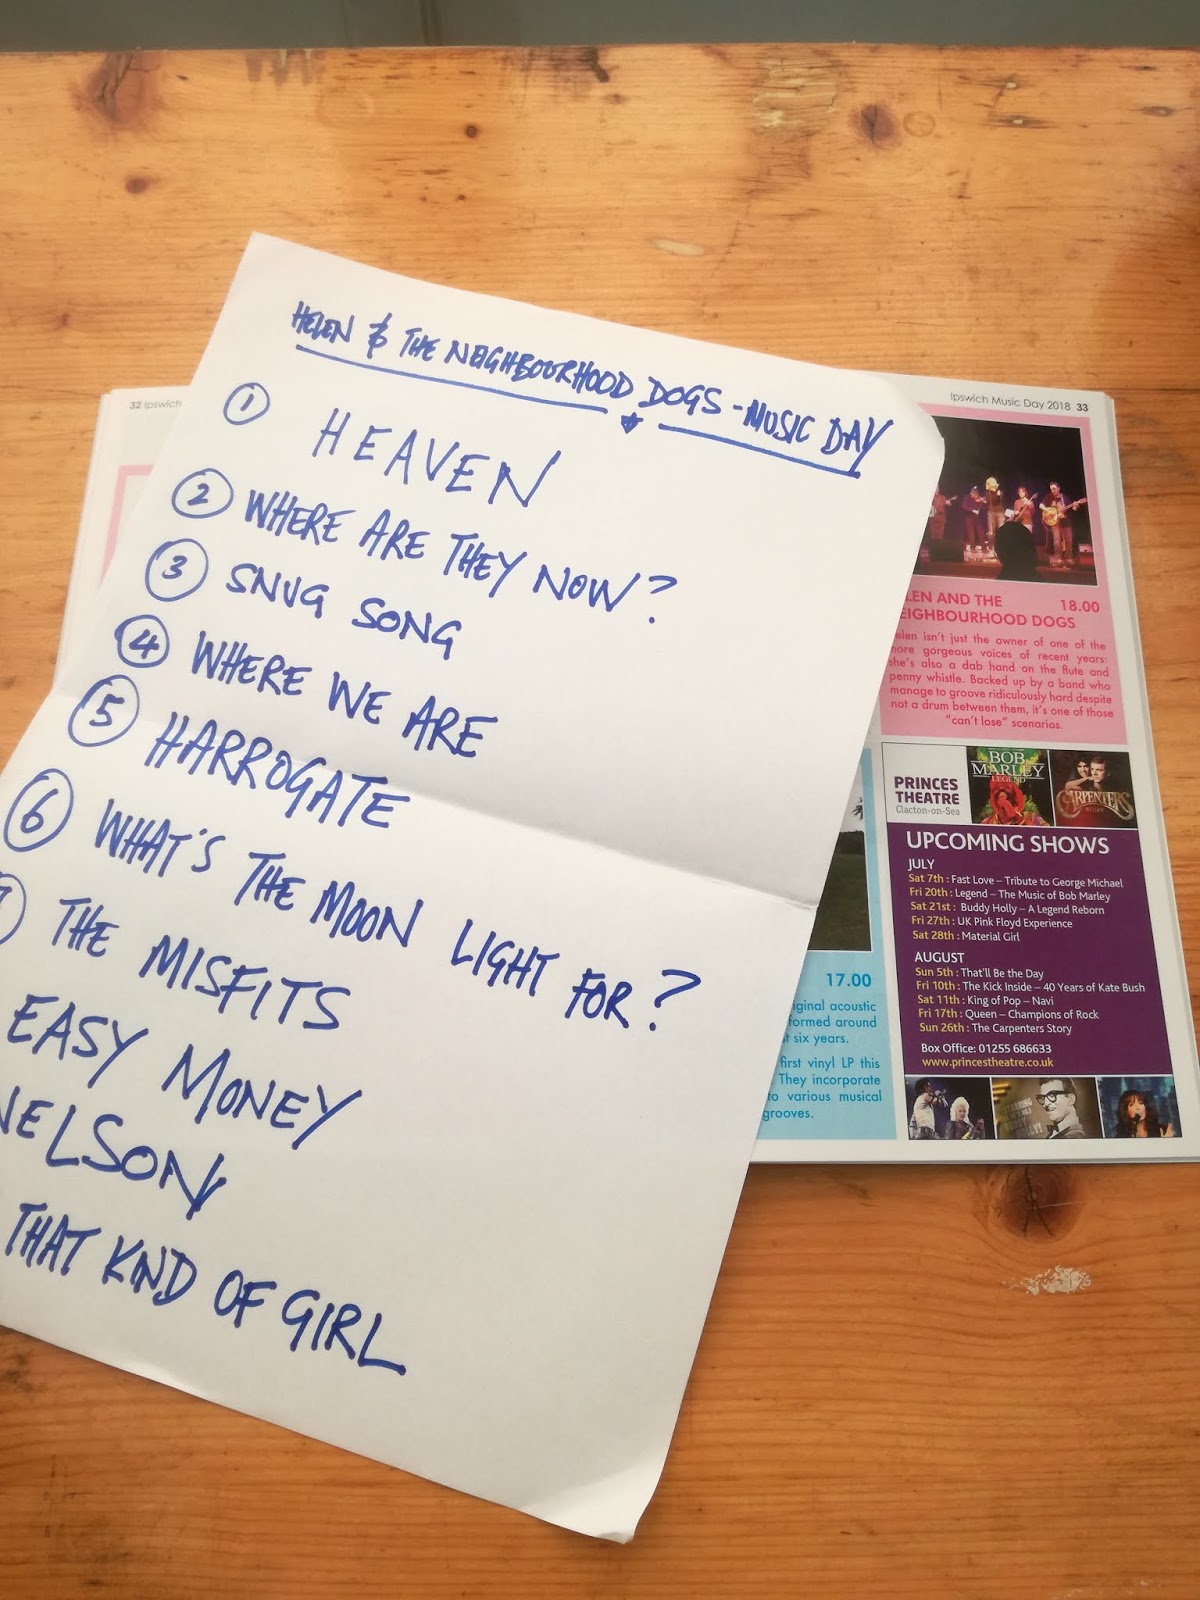 HELEN & THE NEIGHBOURHOOD DOGS - MUSIC DAY
1 HEAVEN
2 WHERE ARE THEY NOW?
3 SNUG SONG
4 WHERE WE ARE
5 HARROGATE
6 WHAT'S THE MOON LIGHT FOR?
THE MISFITS
EASY MONEY
NELSON
THAT KIND OF GIRL
32 Ipswich
Ipswich Music Day 2018 33
LEN AND THE 18.00
EIGHBOURHOOD DOGS
elen isn't just the owner of one of the
more gorgeous voices of recent years:
she's also a dab hand on the flute and
penny whistle. Backed up by a band who
manage to groove ridiculously hard despite
not a drum between them, it's one of those
"can't lose" scenarios.
17.00
iginal acoustic
formed around
t six years.
first vinyl LP this
They incorporate
to various musical
grooves.
PRINCES
THEATRE
Clacton-on-Sea
BOB
MARLEY
LEGEND
CARPENTERS
STORY
UPCOMING SHOWS
JULY
Sat 7th : Fast Love – Tribute to George Michael
Fri 20th : Legend – The Music of Bob Marley
Sat 21st : Buddy Holly – A Legend Reborn
Fri 27th : UK Pink Floyd Experience
Sat 28th : Material Girl
AUGUST
Sun 5th : That'll Be the Day
Fri 10th : The Kick Inside – 40 Years of Kate Bush
Sat 11th : King of Pop – Navi
Fri 17th : Queen – Champions of Rock
Sun 26th : The Carpenters Story
Box Office: 01255 686633
www.princestheatre.co.uk